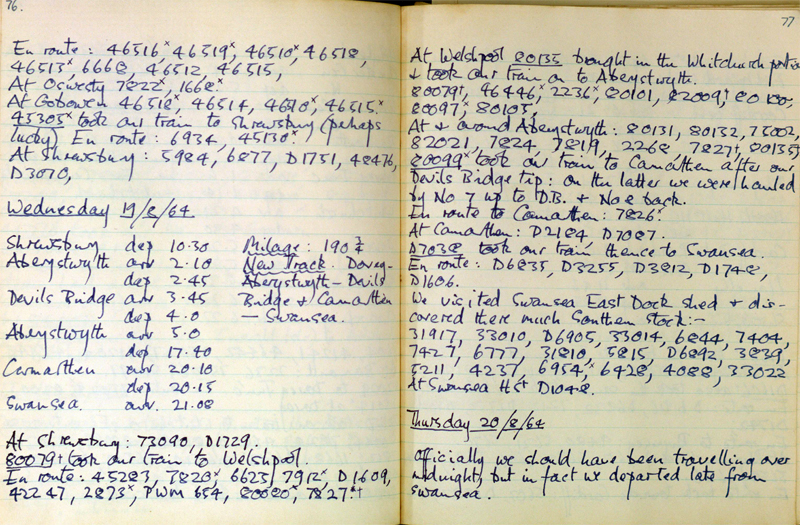 76.
En route : 46516ˣ, 46519ˣ, 46510ˣ, 46518,
46513ˣ, 6668, 46512, 46515,
At Oswestry 7822ˣ, 1668ˣ
At Gobowen 46512ˣ, 46514, 46510ˣ, 46515.ˣ
45305ˣ took our train to Shrewsbury (perhaps
lucky) En route : 6934, 45130ˣ.
At Shrewsbury : 5984, 6877, D1751, 48476,
D3070,
Wednesday 19/8/64
Shrewsbury dep 10.30 Milage : 190¾
Aberystwyth arr 2.10 New Track. Dovey-
dep 2.45 Aberystwyth – Devils
Devils Bridge arr 3.45 Bridge & Camarthen
dep 4.0 – Swansea.
Aberystwyth arr 5.0
dep 17.40
Camarthen arr 20.10
dep 20.15
Swansea. arr. 21.08
At Shrewsbury : 73090, D1729.
80079† took our train to Welshpool.
En route : 45283, 7820ˣ, 6625, 7912ˣ, D1609,
42247, 2873ˣ, PWM 654, 80080ˣ, 7827.ˣ†
77
At Welshpool 80135 brought in the Whitchurch portion
& took our train on to Aberystwyth.
80079†, 46446ˣ, 2236ˣ, 80101, 82009†, 80130,
80097ˣ, 80105,
At & around Aberystwyth : 80131, 80132, 75002,
82021, 7824, 7819, 2268, 7827†, 80135,
80099ˣ took our train to Camarthen after our
Devils Bridge trip : on the latter we were hauled
by No 7 up to D.B. & No 8 back.
En route to Camarthen : 7826.
At Camarthen : D2184, D7087.
D7038 took our train thence to Swansea.
En route : D6835, D3255, D3812, D1748,
D1606.
We visited Swansea East Dock shed & dis-
covered there much Southern stock :–
31917, 33010, D6905, 33014, 6844, 7404,
7427, 6777, 31810, 5815, D6892, 3839,
5211, 4237, 6954ˣ, 6428, 4088, 33022
At Swansea HSt D1048.
Thursday 20/8/64
Officially we should have been travelling over
midnight, but in fact we departed late from
Swansea.